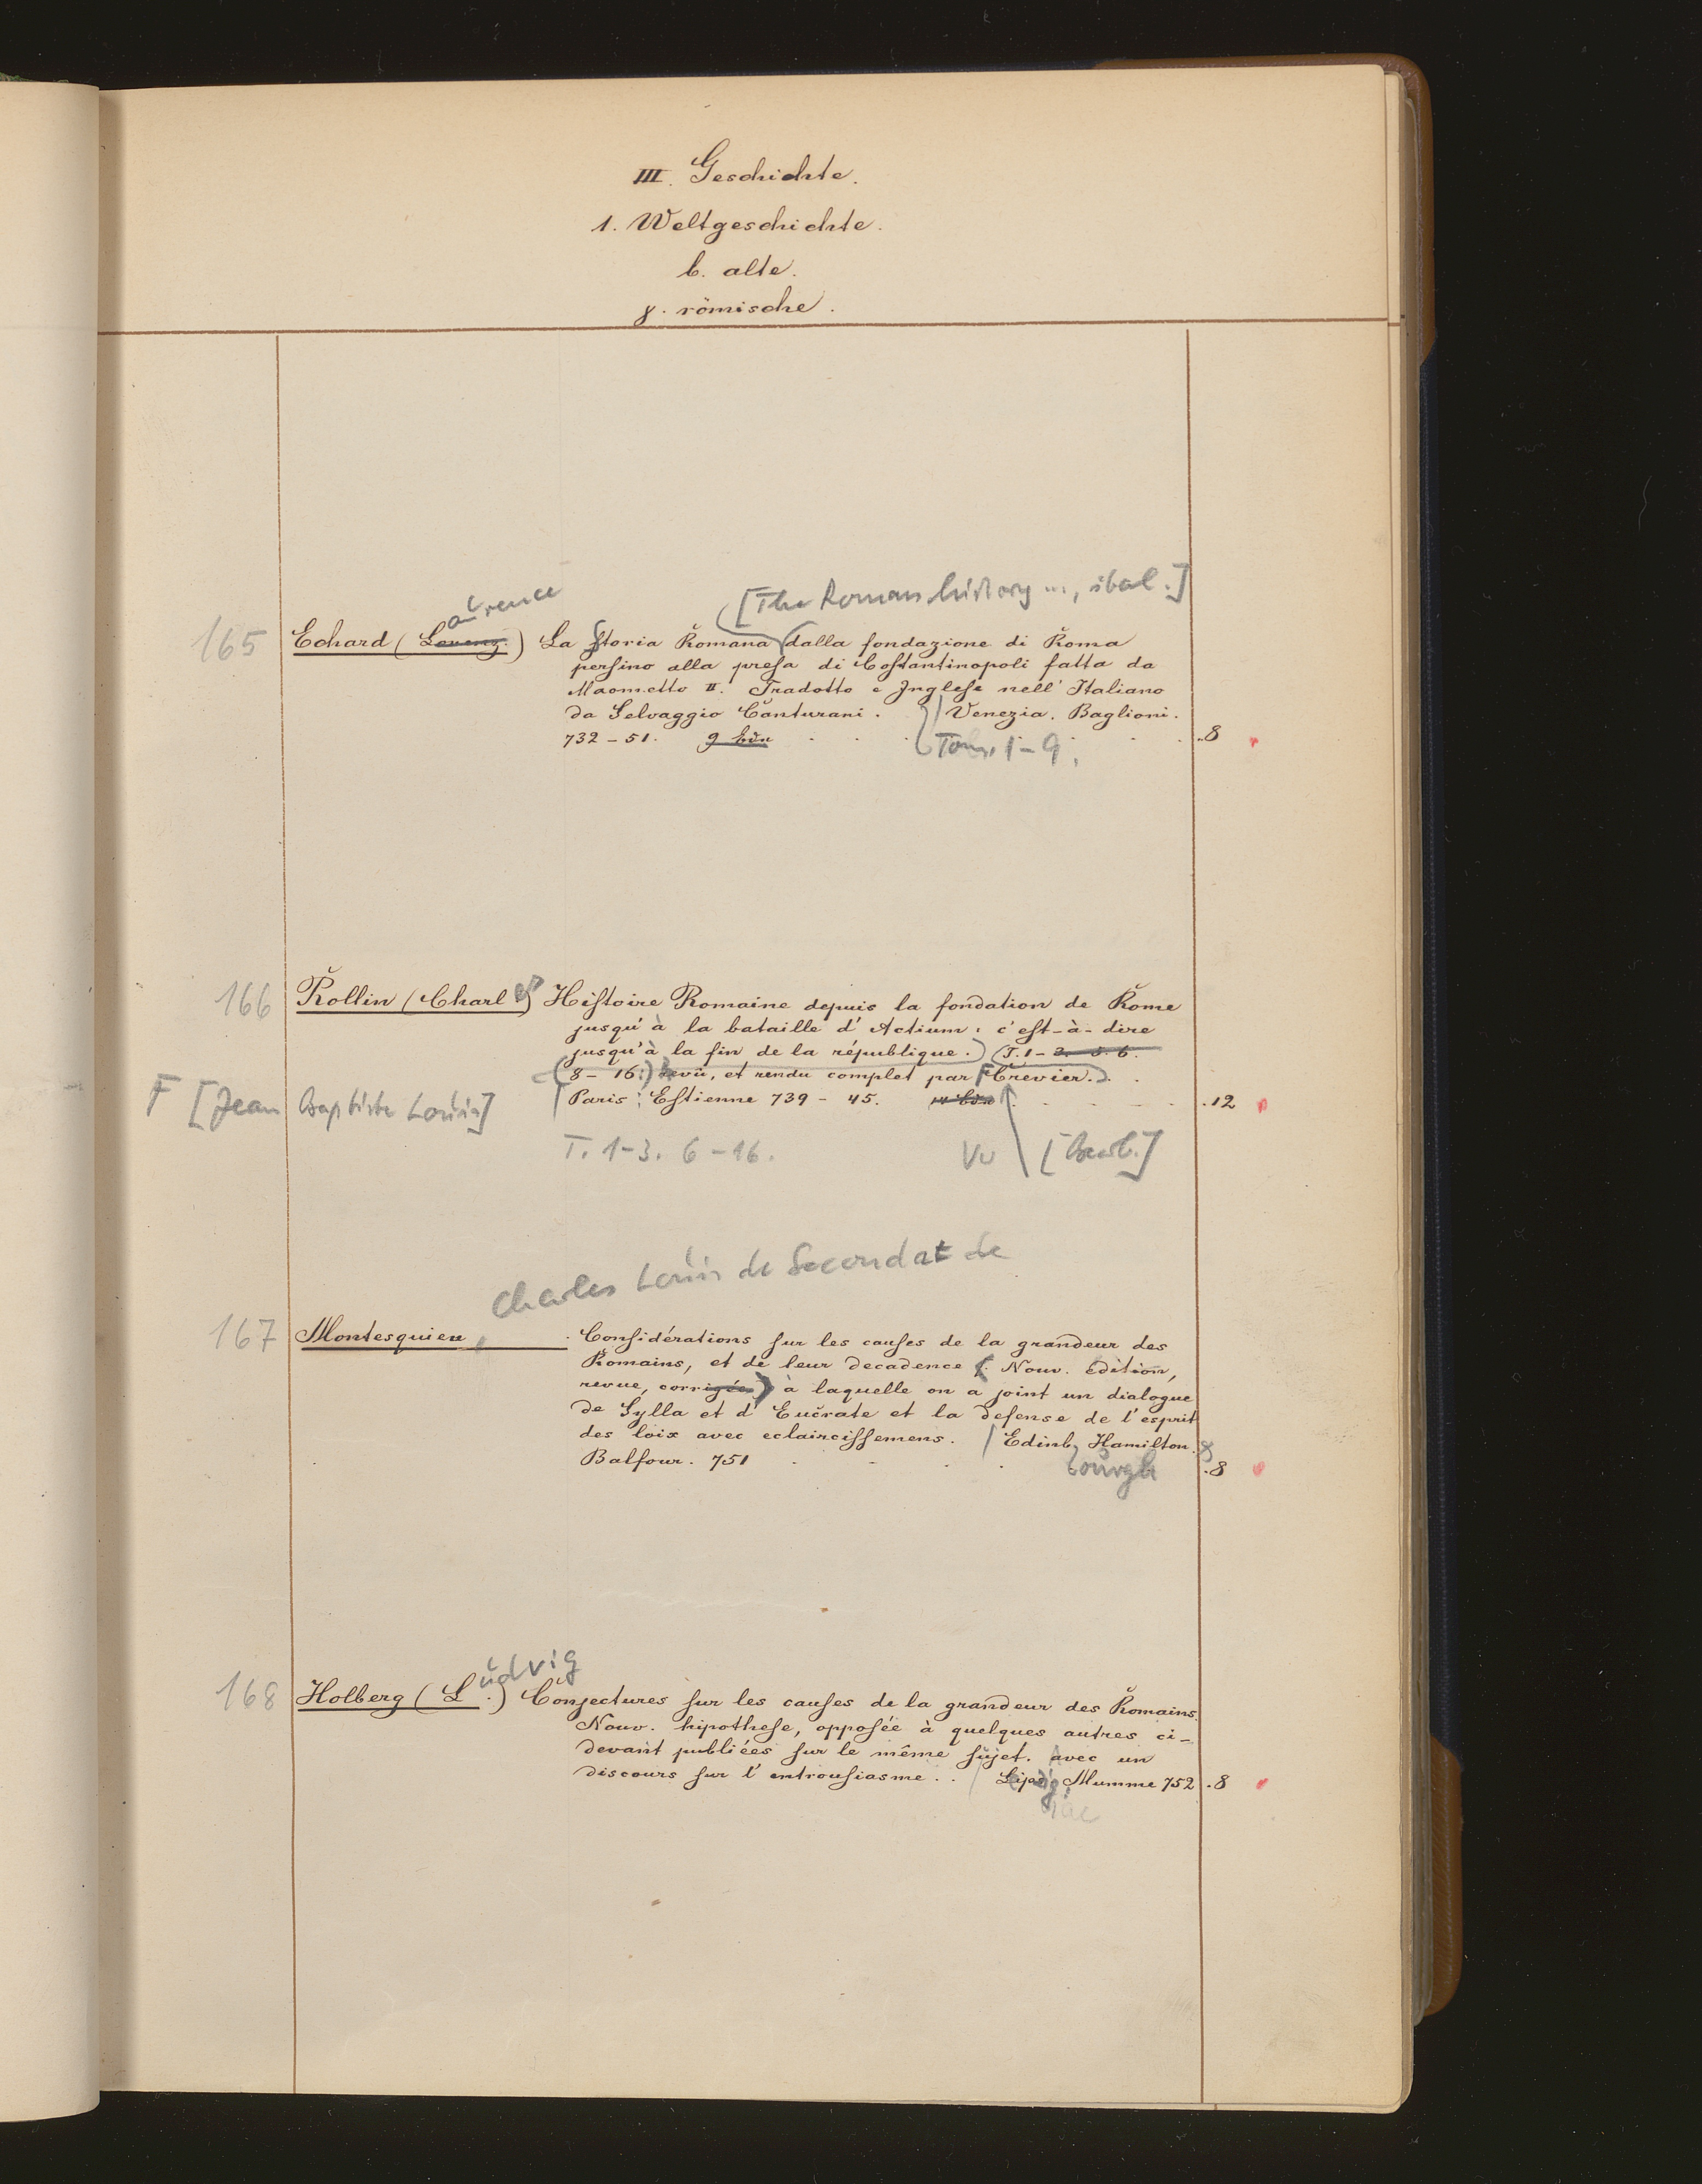 III. Geschichte.
1. Weltgeschichte.
b. alte.
γ. römische.
[The Roman history ..., ital.]
aurence
165 Echard (Laurenz.) La Storia Romana dalla fondazione di Roma
persino alla presa di Costantinopoli fatta da
Maometto II. Tradotto e Inglese nell' Italiano
da Selvaggio Canturani. Venezia. Baglioni.
732-51. 9 bdn . . . Tom. 1-9. . . .8
166 Rollin (Charles) Histoire Romaine depuis la fondation de Rome
jusqu'à la bataille d'Actium: c'est-à-dire
jusqu'à la fin de la république.) (T. 1-3. 5. 6.
(8-16:) revû, et rendu complet par Crevier.
F [Jean Baptiste Louis] Paris: Estienne 739-45. 14 bdn . . . . .12
T. 1-3. 6-16. Vv [Bearb.]
Charles Louis de Secondat de
167 Montesquieu, Considérations sur les causes de la grandeur des
Romains, et de leur decadence. Nouv. edition,
revue, corrigée) à laquelle on a joint un dialogue
de Sylla et d'Eucrate et la defense de l'esprit
des loix avec eclaircissemens. Edinb, Hamilton. &
Balfour. 751 . . . .8
bourgh
udvig
168 Holberg (L.) Conjectures sur les causes de la grandeur des Romains.
Nouv. hipothese, opposée à quelques autres ci-
devant publiées sur le même sujet. avec un
discours sur l'entrousiasme. . Leipzig, Mumme 752 .8